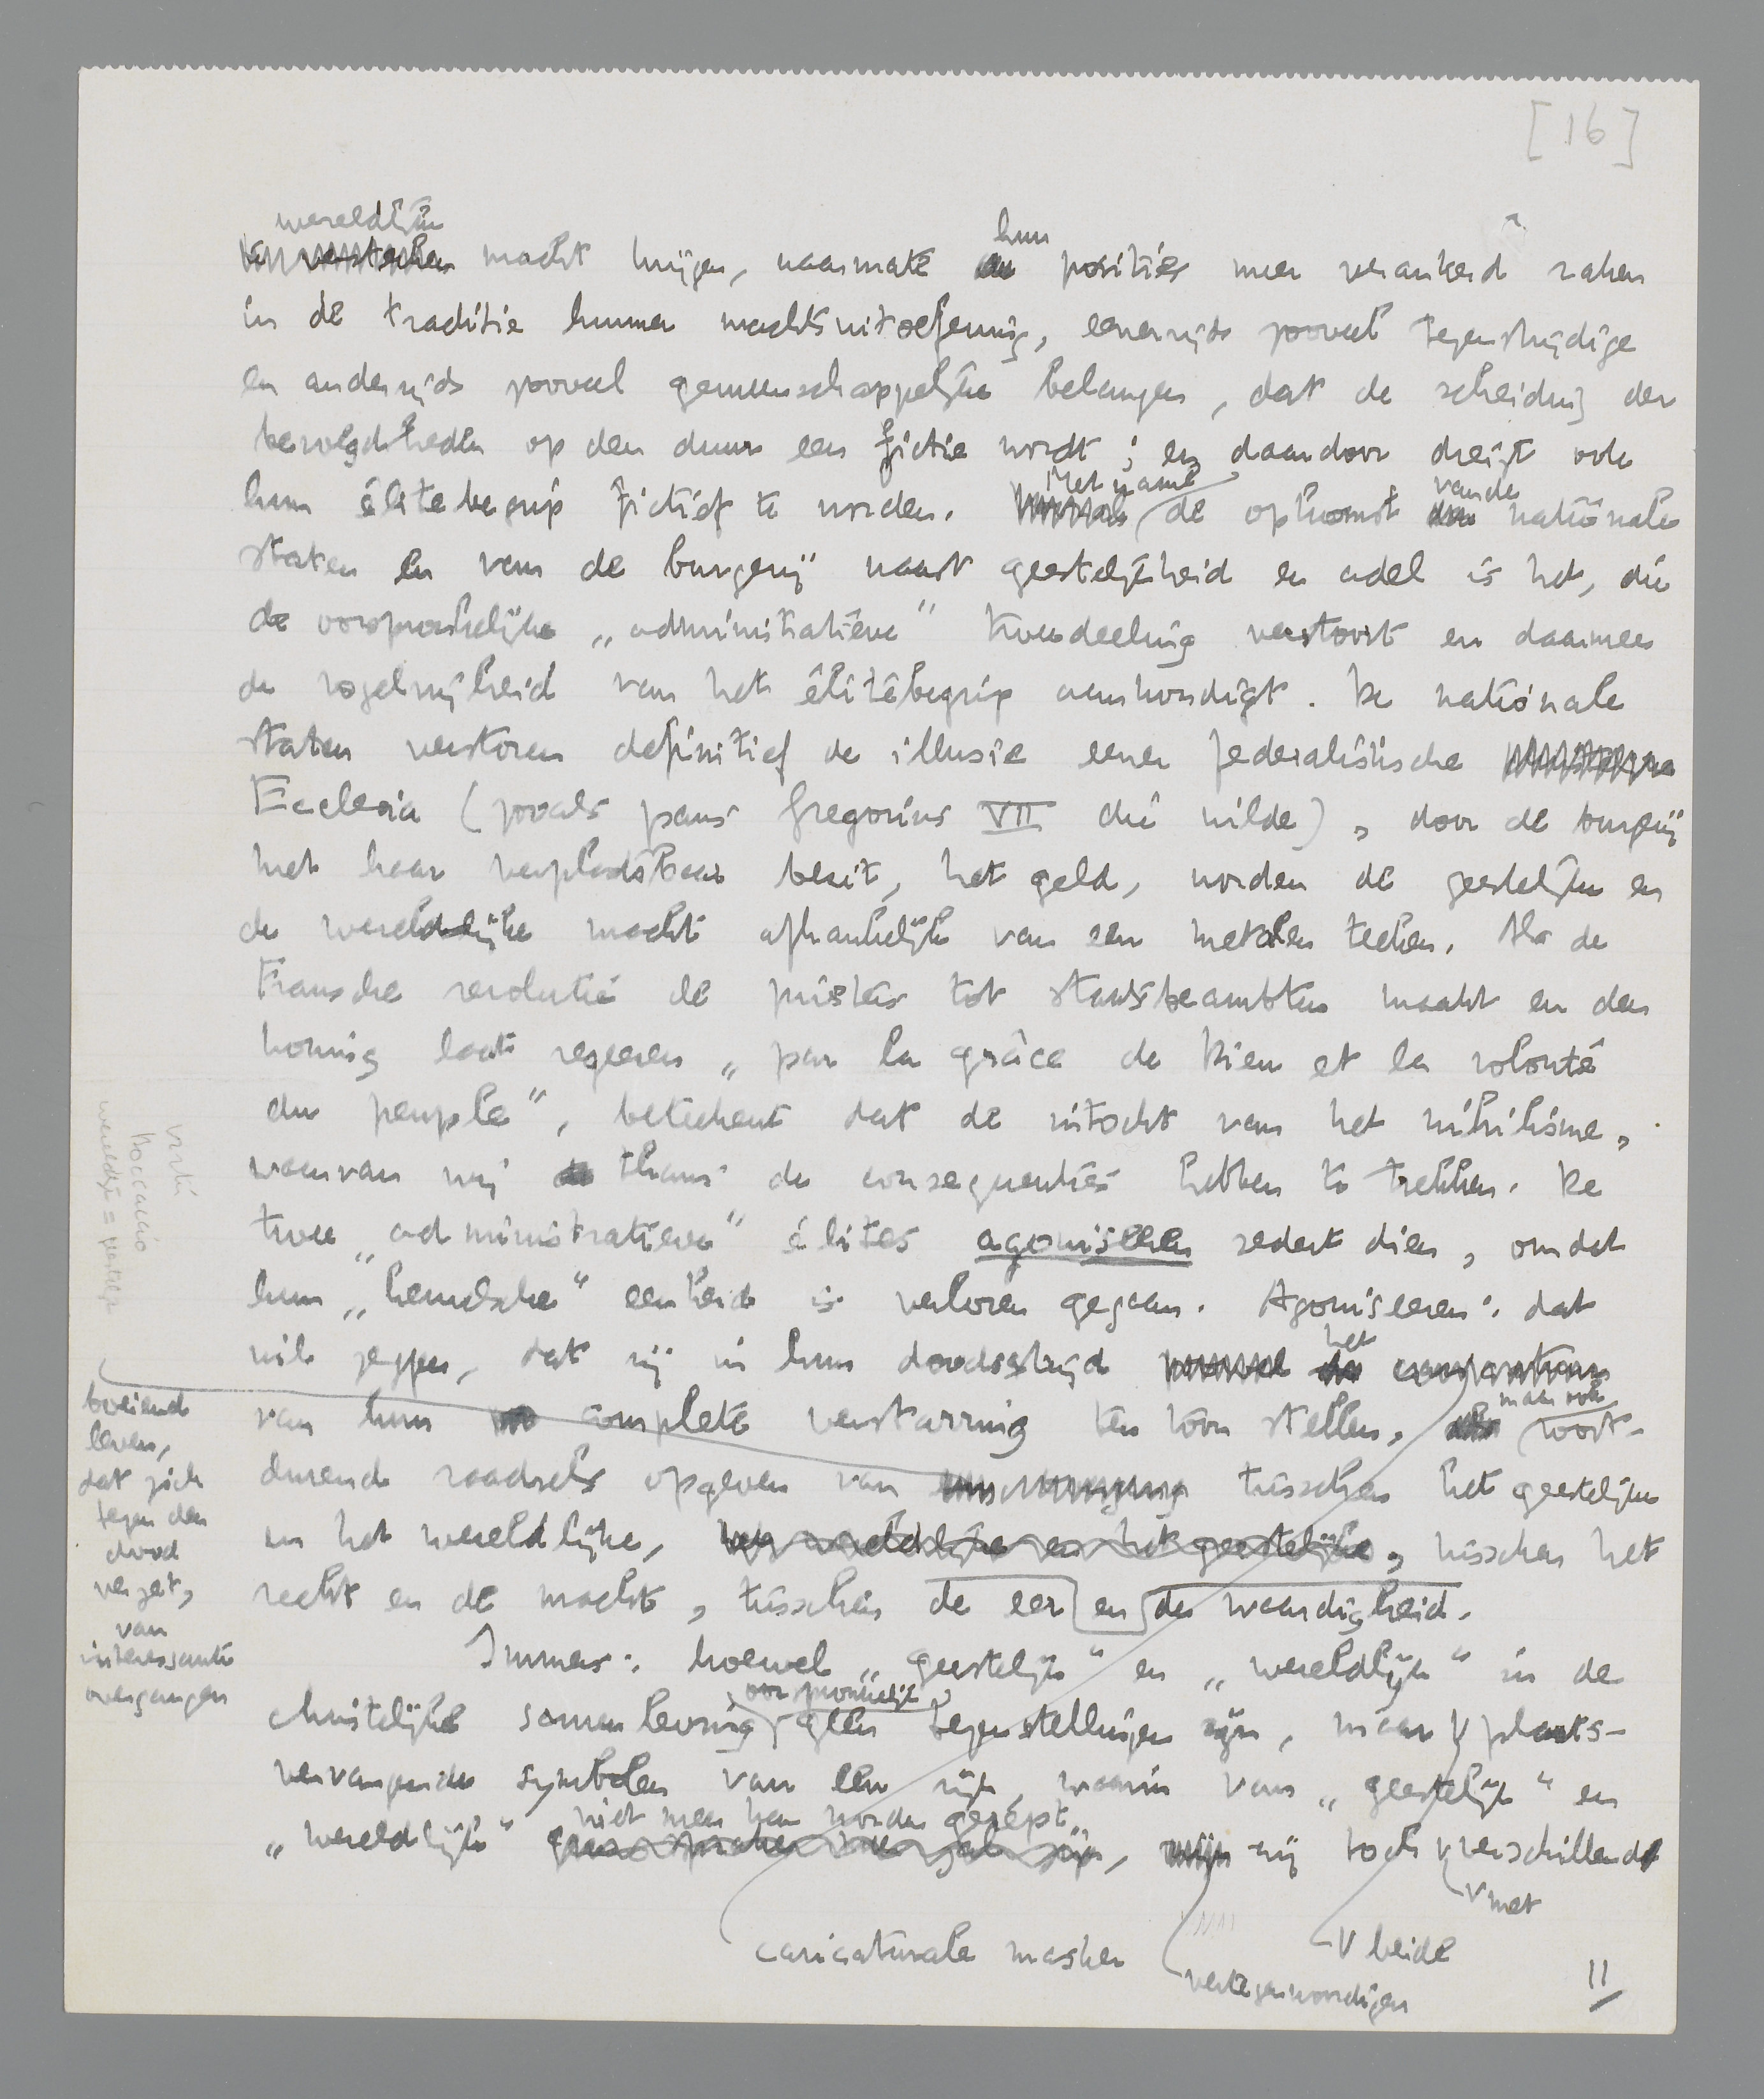 [16]
wereldlijke
macht krijgen, naarmate hun posities meer verankerd raken
in de traditie hunner machtsuitoefening, eenerzijds zooveel tegenstrijdige
en anderzijds zooveel gemeenschappelijke belangen, dat de scheiding der
bevoegdheden op den duur een fictie wordt; en daardoor dreigt ook
hun élitebegrip fictief te worden. Met name de opkomst van de nationale
staten en van de burgerij naast geestelijkheid en adel is het, die
de oorspronkelijke „administratieve" tweedeeling verstoort en daarmee
de vogelvrijheid van het élitebegrip aankondigt. De nationale
staten verstoren definitief de illusie eener federalistische
Ecclesia (zooals paus Gregorius VII die wilde), door de burgerij
met haar verplaatsbaar bezit, het geld, worden de geestelijke en
de wereldlijke macht afhankelijk van een metalen teeken. Als de
Fransche revolutie de priesters tot staatsbeambten maakt en den
koning laat regeeren „par la grâce de Dieu et la volonté
du peuple", beteekent dat de intocht van het nihilisme,
waarvan wij thans de consequenties hebben te trekken. De
twee „administratieve" élites agoniseeren sedert dien, omdat
hun „hemelsche" eenheid is verloren gegaan. Agoniseeren: dat
wil zeggen, dat zij in hun doodsstrijd het
van hun complete verstarring ten toon stellen, maar ook voort-
durend raadsels opgeven van tusschen het geestelijke
en het wereldlijke, het wereldlijke en het geestelijke, tusschen het
recht en de macht, tusschen de eer en de waardigheid.
Immers: hoewel „geestelijk" en „wereldlijk" in de
christelijke samenleving oorspronkelijk geen tegenstellingen zijn, maar plaats-
vervangende symbolen van een rijk waarin van „geestelijk" en
„wereldlijk" niet meer kan worden gerept, zij toch verschillende
V met
V beide
caricaturale masker
vertegenwoordigen
11
boeiend
leven,
dat zich
tegen den
dood
verzet,
van
interessante
overgangen
Boccaccio